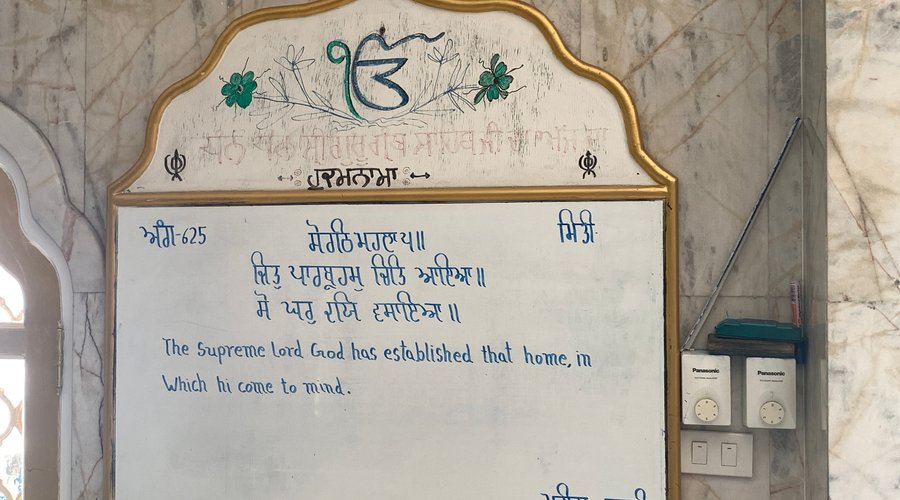 ੴ
ਧਨ ਧਨ ਸ੍ਰੀ ਗੁਰੂ ਗ੍ਰੰਥ ਸਾਹਿਬ ਜੀ ਦਾ ਅੱਜ ਦਾ
ਹੁਕਮਨਾਮਾ
ਅੰਗ-625 ਸੋਰਠਿ ਮਹਲਾ ੫॥ ਮਿਤੀ
ਜਿਤੁ ਪਾਰਬ੍ਰਹਮੁ ਚਿਤਿ ਆਇਆ॥
ਸੋ ਘਰੁ ਦਯਿ ਵਸਾਇਆ॥
The Supreme Lord God has established that home, in
Which hi come to mind.
Panasonic
Panasonic